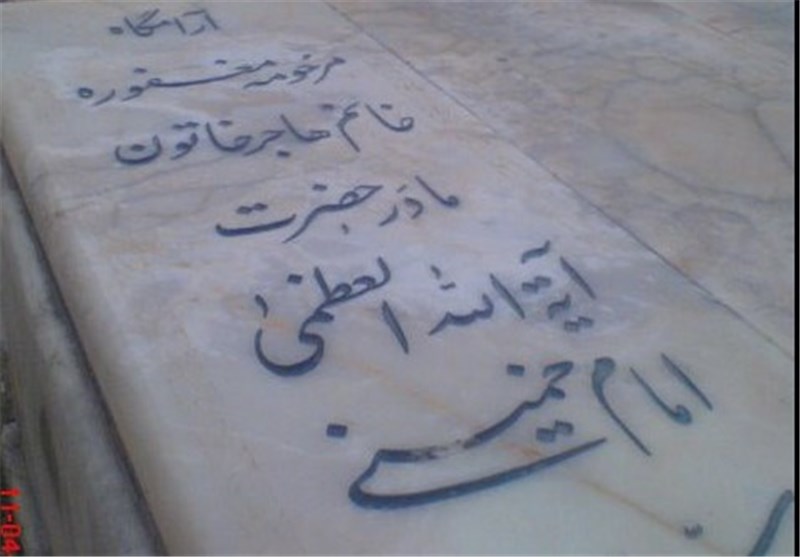 آرامگاه
مرحومه مغفوره
خانم هاجر خاتون
مادر حضرت
آیة الله العظمی
امام خمینی
11-04